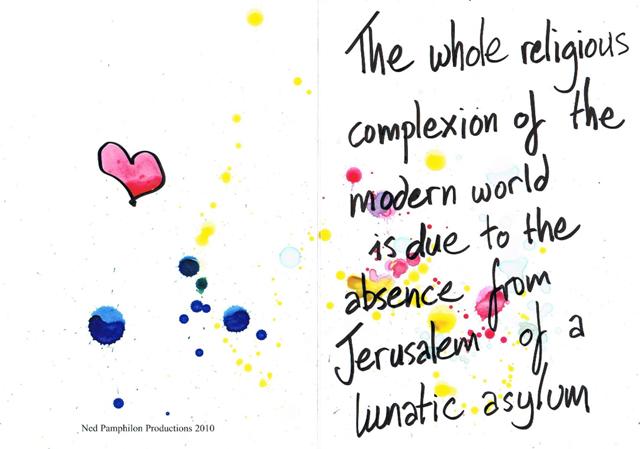 The whole religious
complexion of the
modern world
is due to the
absence from
Jerusalem of a
lunatic asylum
Ned Pamphilon Productions 2010